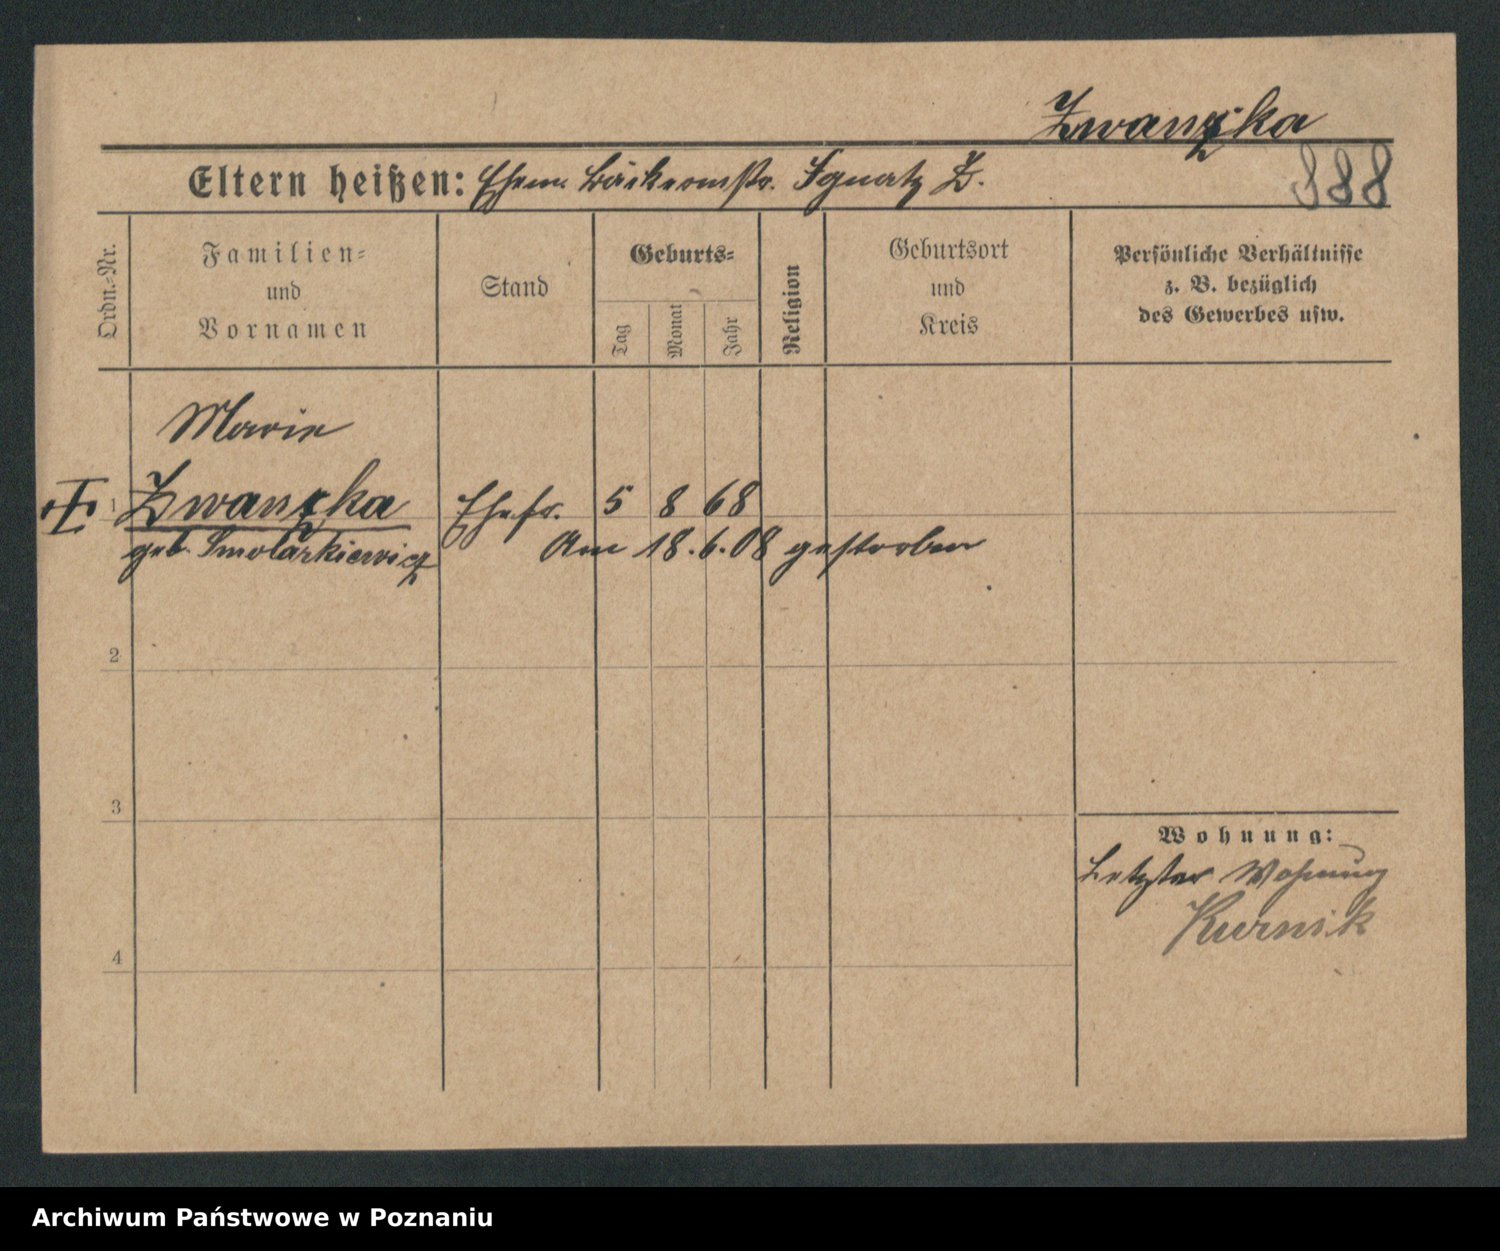 Zwanzka
Eltern heißen: Ehem. Bäckermstr. Ignatz Z.
888
Ordn.-Nr.
Familien-
und
Vornamen
Stand
Geburts-
Tag
Monat
Jahr
Religion
Geburtsort
und
Kreis
Persönliche Verhältnisse
z. B. bezüglich
des Gewerbes usw.
Marie
1 Zwanzka Ehefr. 5 8 68
geb. Smolarkiewicz
Am 18.6.08 gestorben
2
3
4
Wohnung:
Letzter Wohnung
Kurnik
Archiwum Państwowe w Poznaniu